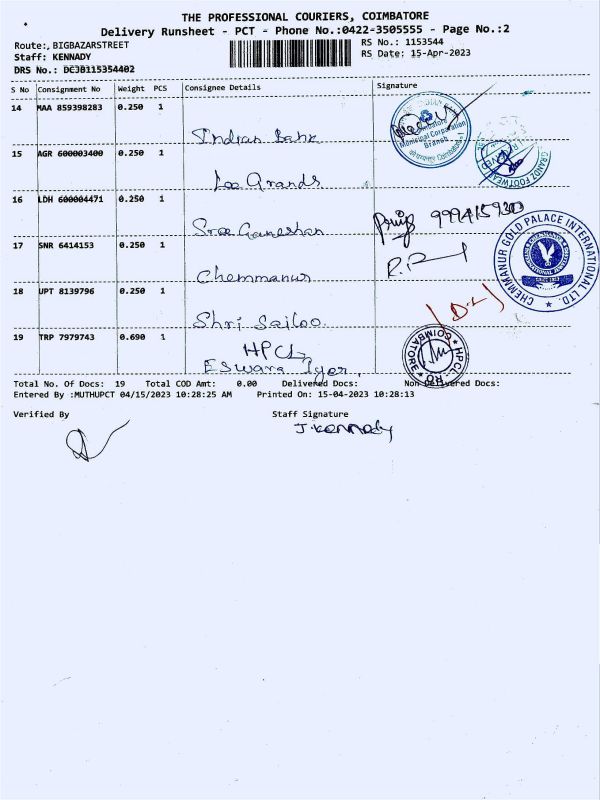 THE PROFESSIONAL COURIERS, COIMBATORE
Delivery Runsheet - PCT - Phone No.:0422-3505555 - Page No.:2
Route:, BIGBAZARSTREET
RS No.: 1153544
Staff: KENNADY
RS Date: 15-Apr-2023
DRS No.: DCJB115354402
S No Consignment No Weight PCS Consignee Details Signature
14 MAA 859398283 0.250 1
Indian Bank
Coimbatore
Municipal Corporation
Branch
15 AGR 600003400 0.250 1
Lee Grands
GRANDZ FOOTWEAR
16 LDH 600004471 0.250 1
Sree Ganeshan
9994159300
17 SNR 6414153 0.250 1
Chemmanur
CHEMMANUR GOLD PALACE INTERNATIONAL LTD.
18 UPT 8139796 0.250 1
Shri Sailoo.
19 TRP 7979743 0.690 1
HPCL
Eswara Iyer.
HPCL-RO COIMBATORE
Total No. Of Docs: 19 Total COD Amt: 0.00 Delivered Docs: Non Delivered Docs:
Entered By :MUTHUPCT 04/15/2023 10:28:25 AM Printed On: 15-04-2023 10:28:13
Verified By Staff Signature
J.Kennady